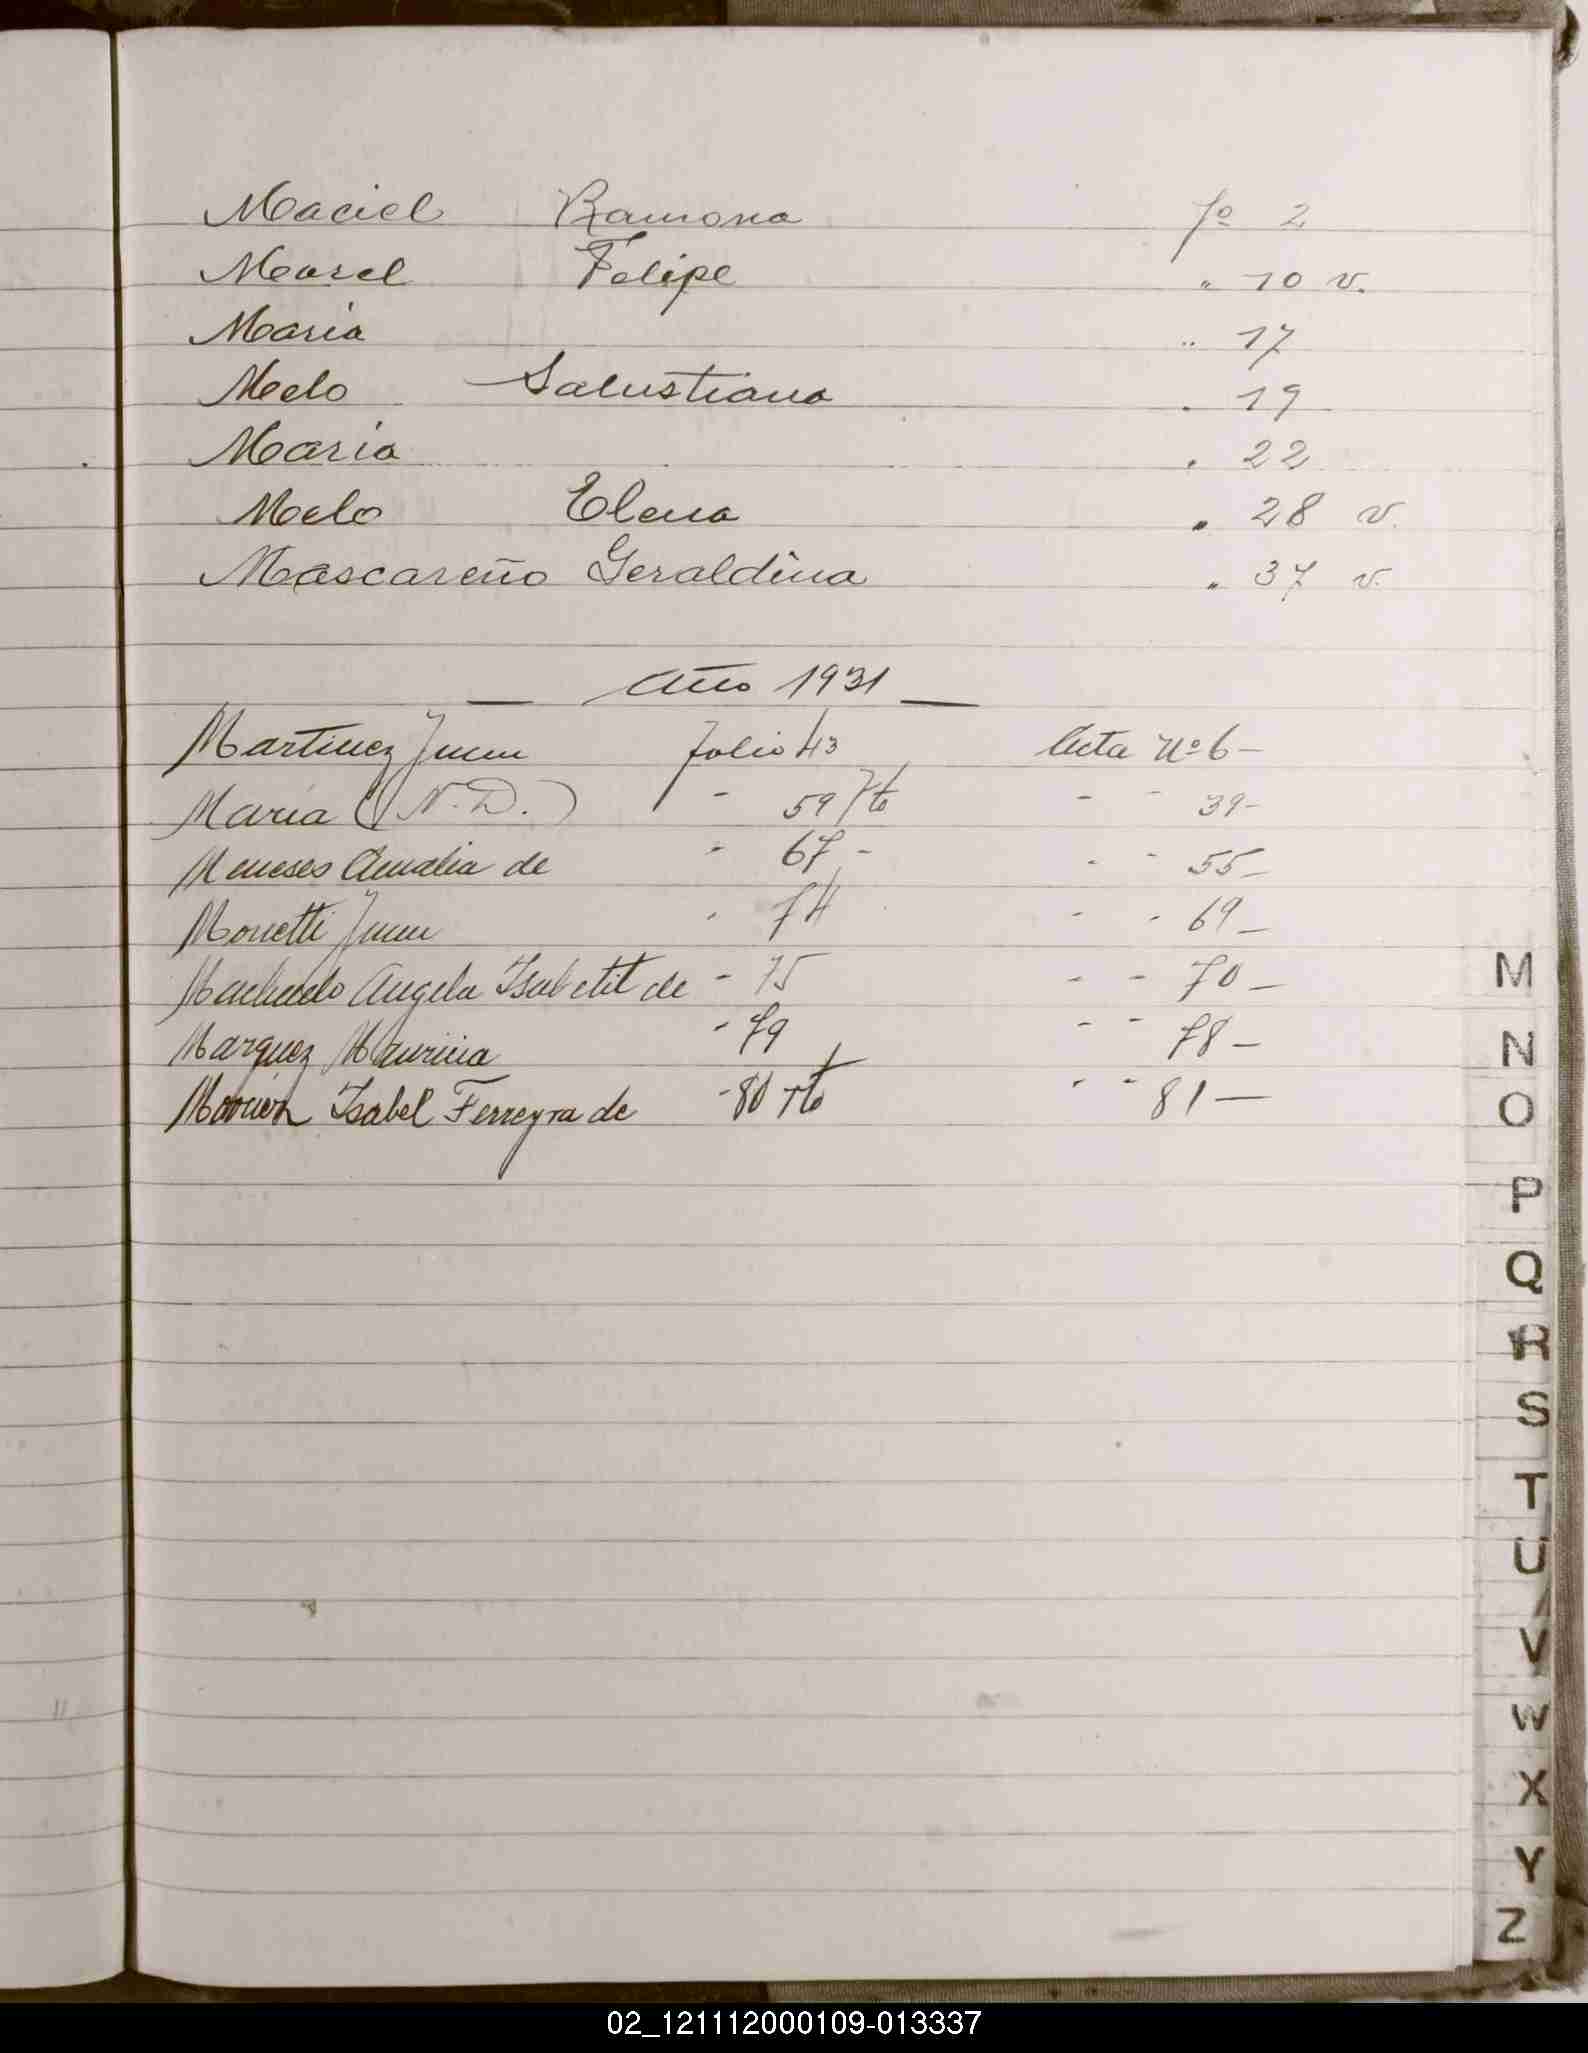 Maciel Ramona fo 2
Morel Felipe " 10 v.
Maria " 17
Melo Salustiana " 19
Maria " 22
Melo Elena " 28 v.
Mascareño Geraldina " 37 v.
— Año 1931 —
Martinez Juan folio 43 Acta Nº 6 -
Maria (N. D.) - 59 - - 39 -
Meneses Amalia de - 67 - - - 55 -
Monetti Juan - 74 - - 69 -
Machado Angela de - 75 - - 70 -
Marquez - 79 - - 78 -
Isabel Ferreyra de - 80 - - 81 —
M
N
O
P
Q
R
S
T
U
V
W
X
Y
Z
02_121112000109-013337